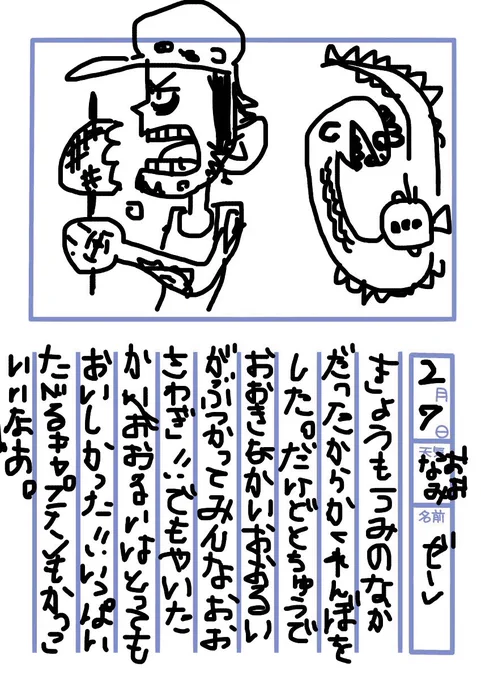 2月7日
天気 おおなみ
名前
きょうもうみのなか
だったからかくれんぼを
した。だけどとちゅうで
おおきなかいおおるい
がぶつかってみんなおお
さわぎ!!でもやいた
かいおおるいはとっても
おいしかった!!いっぱい
たべるキャプテンもかっこ
いいなあ。